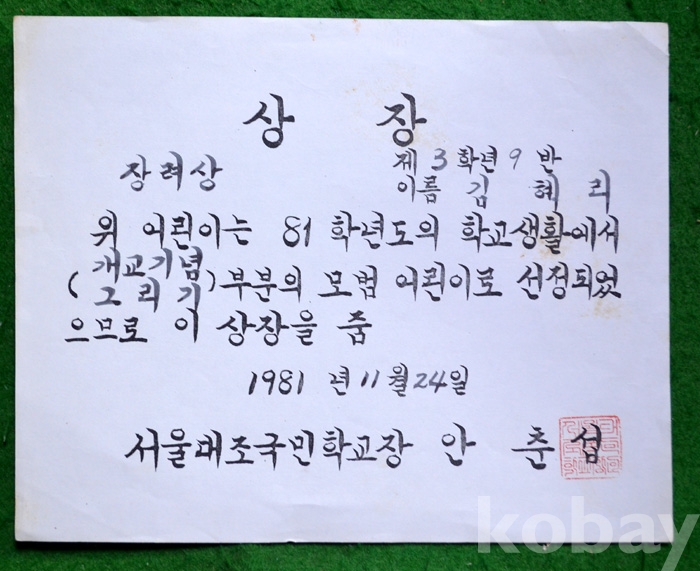 상 장
장려상
제 3 학년 9 반
이름 김 혜 리
위 어린이는 81 학년도의 학교생활에서
(개교기념
그리기)부분의 모범 어린이로 선정되었
으므로 이 상장을 줌
1981 년 11 월 24 일
서울대조국민학교장 안 춘 섭
kobay